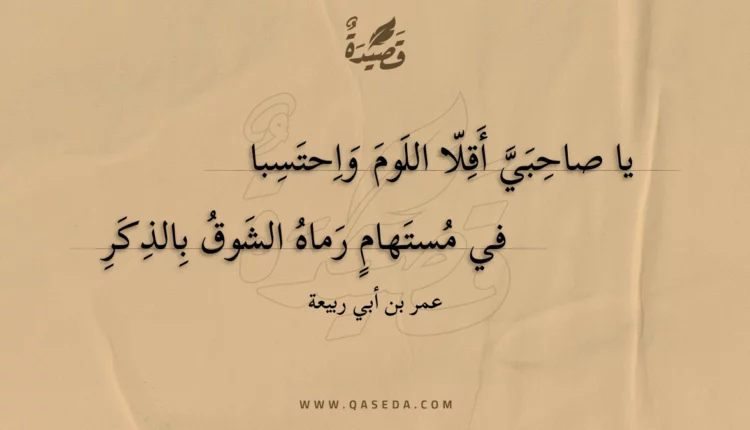 قَصِيدَةٌ
يا صاحِبَيَّ أَقِلّا اللَومَ وَاِحتَسِبا
في مُستَهامٍ رَماهُ الشَوقُ بِالذِكَرِ
عمر بن أبي ربيعة
WWW.QASEDA.COM